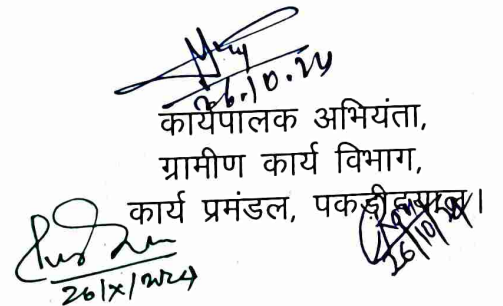 26.10.24
कार्यपालक अभियंता,
ग्रामीण कार्य विभाग,
कार्य प्रमंडल, पकड़ीदयाल।
26/X/2024 26/10/24